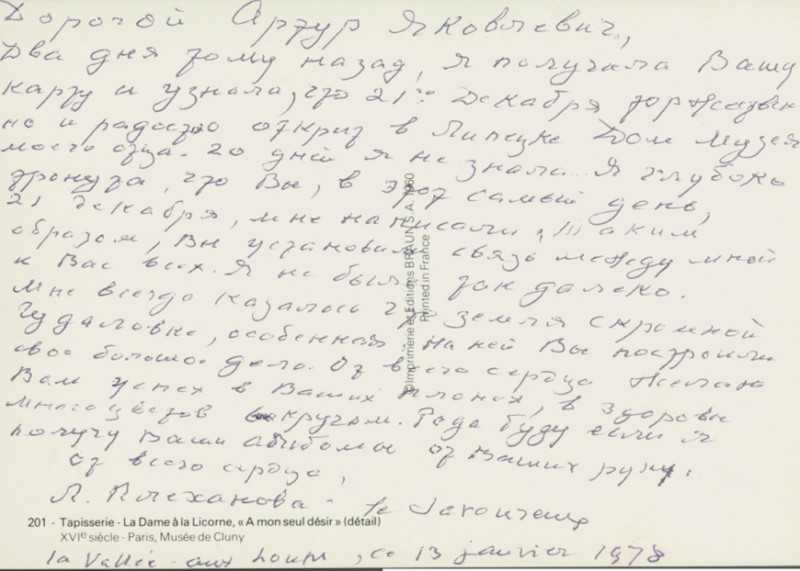 Дорогой Артур Яковлевич,
Два дня тому назад, я получила Вашу
карту и узнала, что 21го Декабря торжествен
но и радостно открыт в Липецке Дом Музея
моего отца. 20 дней я не знала... Я глубоко
тронута, что Вы, в этот самый день,
21 декабря, мне написали, Таким
образом, Вы установили связь между мной
и Вас всех. Я не была так далеко.
Мне всегда казалось что земля скромной
Гудаловке, особенная на ней Вы построили
свое большое дело. От всего сердца желаю
Вам успех в Ваших планах, в здоровье
много цветов кругом. Рада буду если я
получу Ваши альбомы от Ваших рук.
От всего сердца,
Л. Плеханова - le Savoureux
201 - Tapisserie - La Dame à la Licorne, « A mon seul désir » (détail)
XVIe siècle - Paris, Musée de Cluny
la Vallée-aux-Loups, ce 13 janvier 1978
©Imprimerie et Editions BRAUN S.A.
Printed in France